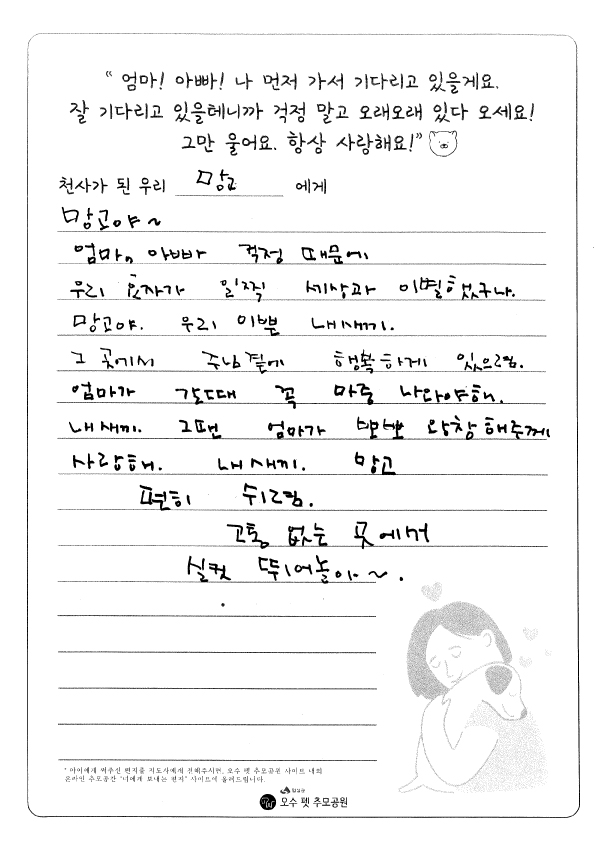 “ 엄마! 아빠! 나 먼저 가서 기다리고 있을게요.
잘 기다리고 있을테니까 걱정 말고 오래오래 있다 오세요!
그만 울어요. 항상 사랑해요!”
천사가 된 우리 망고 에게
망고야~
엄마, 아빠 걱정 때문에
우리 효자가 일찍 세상과 이별했구나.
망고야. 우리 이쁜 내새끼.
그 곳에서 주님곁에 행복하게 있으렴.
엄마가 갈때 꼭 마중 나와야해.
내새끼. 그땐 엄마가 뽀뽀 왕창 해주께
사랑해. 내새끼. 망고
편히 쉬렴.
고통 없는 곳에서
실컷 뛰어놀아~.
* 아이에게 써주신 편지를 지도사에게 전해주시면, 오수 펫 추모공원 사이트 내의
온라인 추모공간 "너에게 보내는 편지" 사이트에 올려드립니다.
임실군
오수 펫 추모공원